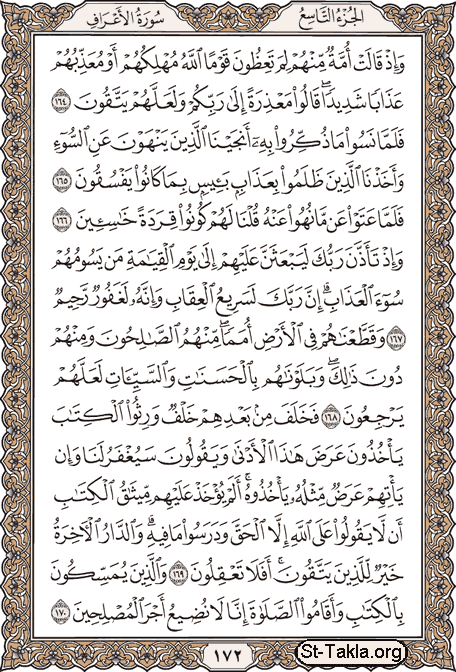 الجُزْءُ التَّاسِعُ سُورَةُ الأَعْرَافِ
وَإِذْ قَالَتْ أُمَّةٌ مِّنْهُمْ لِمَ تَعِظُونَ قَوْمًا ٱللَّهُ مُهْلِكُهُمْ أَوْ مُعَذِّبُهُمْ
عَذَابًا شَدِيدًا ۖ قَالُوا۟ مَعْذِرَةً إِلَىٰ رَبِّكُمْ وَلَعَلَّهُمْ يَتَّقُونَ ١٦٤
فَلَمَّا نَسُوا۟ مَا ذُكِّرُوا۟ بِهِۦٓ أَنجَيْنَا ٱلَّذِينَ يَنْهَوْنَ عَنِ ٱلسُّوٓءِ
وَأَخَذْنَا ٱلَّذِينَ ظَلَمُوا۟ بِعَذَابٍۭ بَـِٔيسٍۭ بِمَا كَانُوا۟ يَفْسُقُونَ ١٦٥
فَلَمَّا عَتَوْا۟ عَن مَّا نُهُوا۟ عَنْهُ قُلْنَا لَهُمْ كُونُوا۟ قِرَدَةً خَـٰسِـِٔينَ ١٦٦
وَإِذْ تَأَذَّنَ رَبُّكَ لَيَبْعَثَنَّ عَلَيْهِمْ إِلَىٰ يَوْمِ ٱلْقِيَـٰمَةِ مَن يَسُومُهُمْ
سُوٓءَ ٱلْعَذَابِ ۗ إِنَّ رَبَّكَ لَسَرِيعُ ٱلْعِقَابِ ۖ وَإِنَّهُۥ لَغَفُورٌ رَّحِيمٌ
١٦٧ وَقَطَّعْنَـٰهُمْ فِى ٱلْأَرْضِ أُمَمًا ۖ مِّنْهُمُ ٱلصَّـٰلِحُونَ وَمِنْهُمْ
دُونَ ذَٰلِكَ ۖ وَبَلَوْنَـٰهُم بِٱلْحَسَنَـٰتِ وَٱلسَّيِّـَٔاتِ لَعَلَّهُمْ
يَرْجِعُونَ ١٦٨ فَخَلَفَ مِنۢ بَعْدِهِمْ خَلْفٌ وَرِثُوا۟ ٱلْكِتَـٰبَ
يَأْخُذُونَ عَرَضَ هَـٰذَا ٱلْأَدْنَىٰ وَيَقُولُونَ سَيُغْفَرُ لَنَا وَإِن
يَأْتِهِمْ عَرَضٌ مِّثْلُهُۥ يَأْخُذُوهُ ۚ أَلَمْ يُؤْخَذْ عَلَيْهِم مِّيثَـٰقُ ٱلْكِتَـٰبِ
أَن لَّا يَقُولُوا۟ عَلَى ٱللَّهِ إِلَّا ٱلْحَقَّ وَدَرَسُوا۟ مَا فِيهِ ۗ وَٱلدَّارُ ٱلْـَٔاخِرَةُ
خَيْرٌ لِّلَّذِينَ يَتَّقُونَ ۗ أَفَلَا تَعْقِلُونَ ١٦٩ وَٱلَّذِينَ يُمَسِّكُونَ
بِٱلْكِتَـٰبِ وَأَقَامُوا۟ ٱلصَّلَوٰةَ إِنَّا لَا نُضِيعُ أَجْرَ ٱلْمُصْلِحِينَ ١٧٠
١٧٢
St-Takla.org